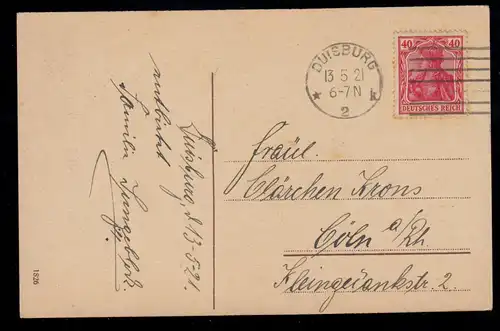 DUISBURG
13 5 21
6-7N
* k
2
40 40
DEUTSCHES REICH
Duisburg d 13.5.21.
Familie
Fräul.
Clärchen Krons
Cöln a/Rh
Kleingedankstr. 2.
1826